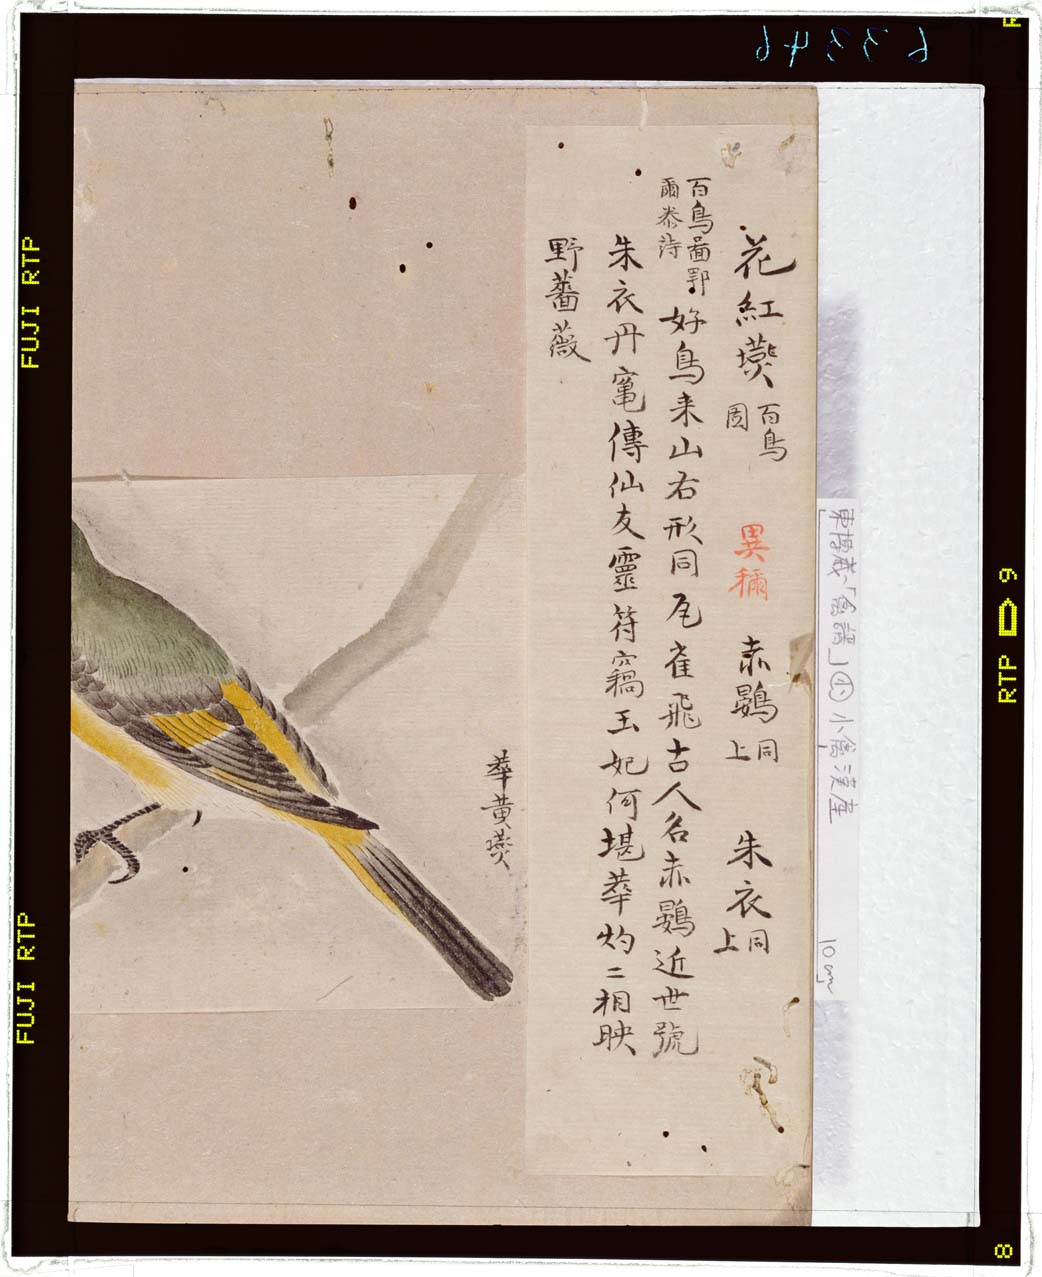 花紅燕 百鳥圖 異稱 赤鷃 同上 朱衣 同上
百鳥圖鄂爾泰詩 好鳥来山右形同瓦雀飛古人名赤鷃近世號
朱衣丹竃傳仙友靈符竊玉妃何堪華灼二相映
野薔薇
華黄燕
東博蔵「禽譜」小禽渓産
10cm
63346
FUJI RTP
FUJI RTP
RTP 9
8